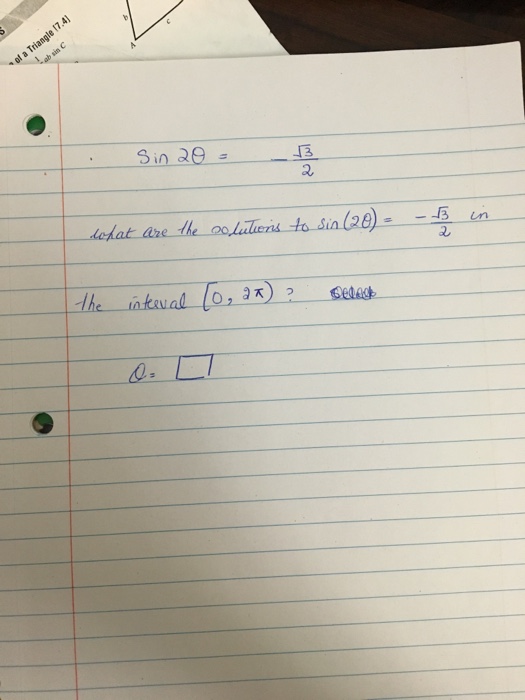 of a Triangle (7.4)
ab sin C
b
c
A
Sin 2θ = - √3/2
what are the solutions to sin(2θ) = - √3/2 in
the interval [0, 2π) ?
θ =